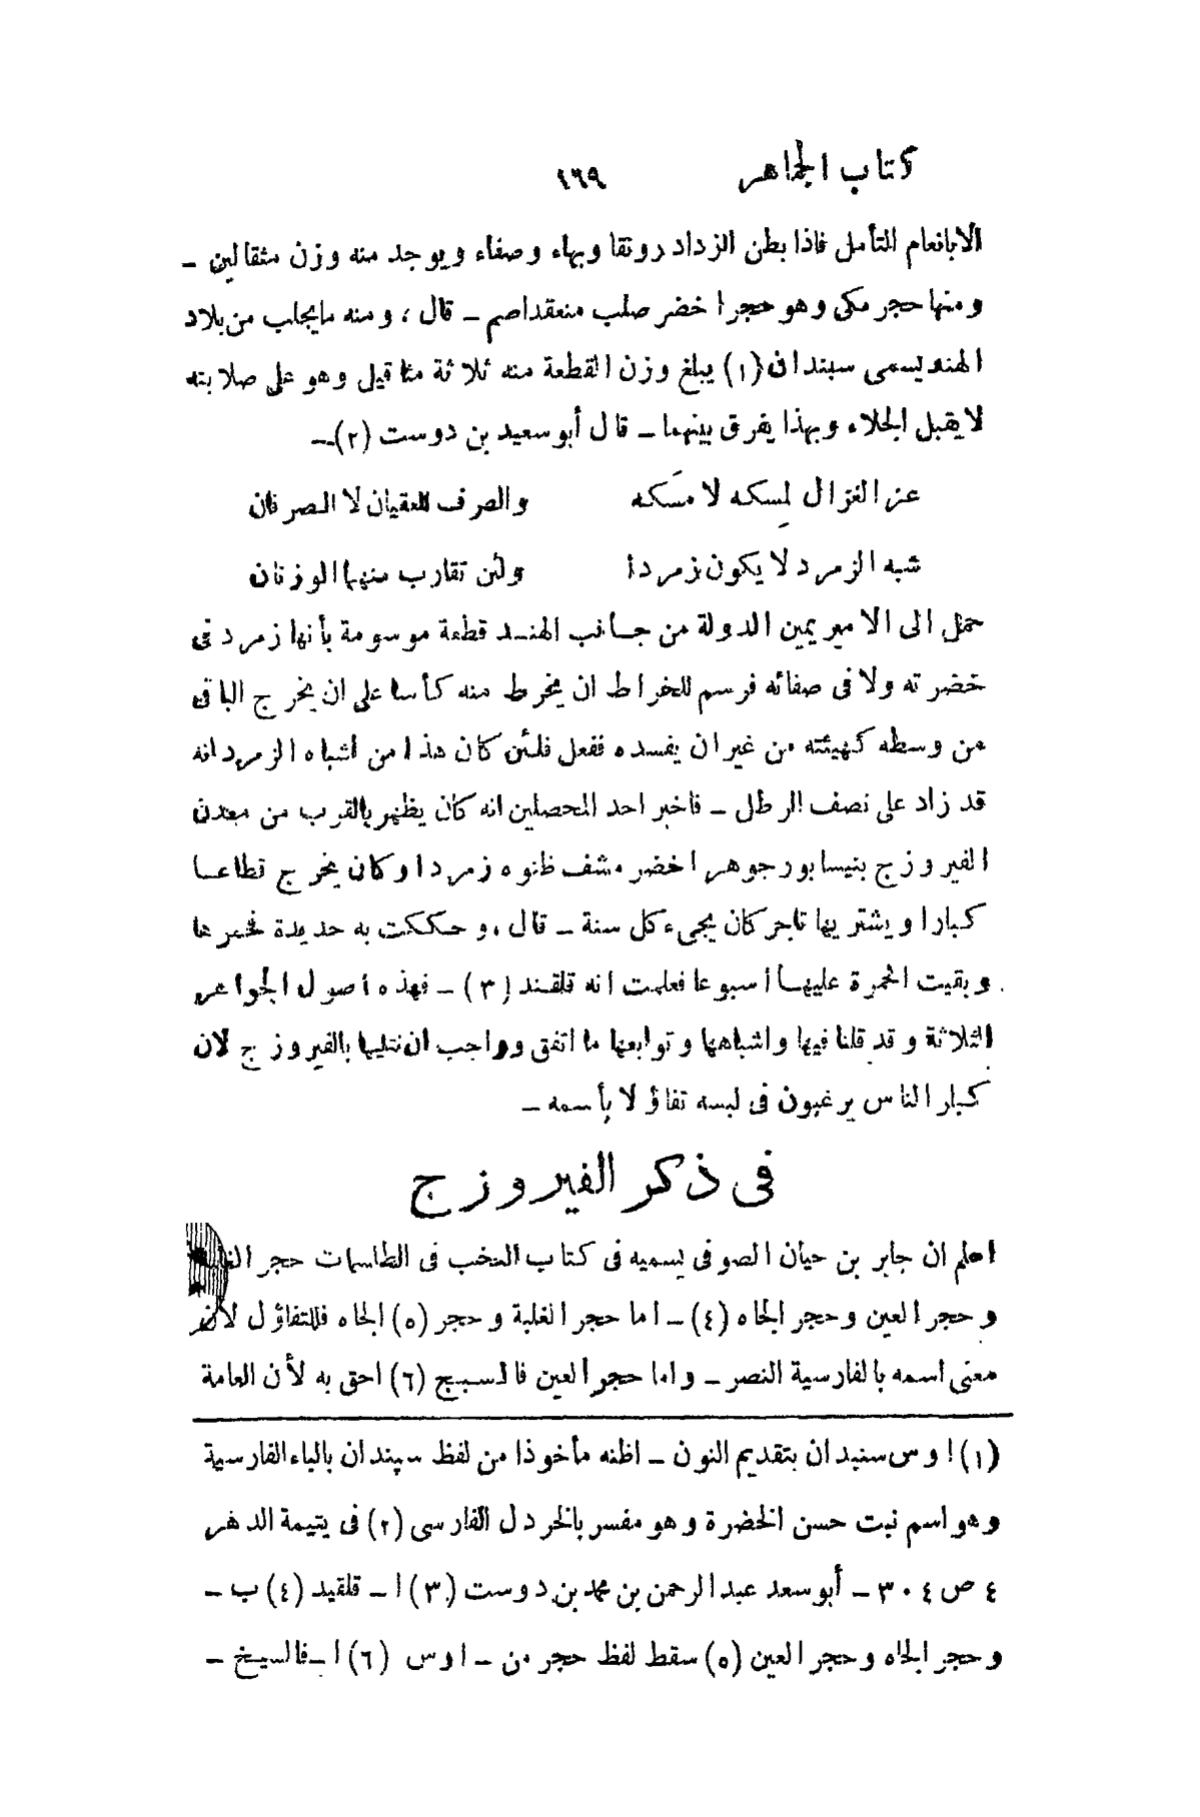 كتاب الجماهر ١٦٩
الا بانعام التأمل فاذا بطن ازداد رونقا وبهاء وصفاء ويوجد منه وزن مثقالين ـ
ومنها حجر مكى وهو حجر اخضر صلب منعقد اصم ـ قال ، ومنه ما يجلب من بلاد
الهند يسمى سبندان (١) يبلغ وزن القطعة منه ثلاثة مثاقيل وهو على صلابته
لا يقبل الجلاء وبهذا يفرق بينهما ـ قال أبو سعيد بن دوست (٢) ـ
عز الغزال لمِسكه لا مَسكه والصرف للعقيان لا الصرفان
شبه الزمرد لا يكون زمردا ولئن تقارب منهما الوزنان
حمل الى الامير يمين الدولة من جانب الهند قطعة موسومة بأنها زمرد فى
خضرته ولا فى صفائه فرسم للخراط ان يخرط منه كأسا على ان يخرج الباقى
من وسطه كهيئته من غير ان يفسده ففعل فلئن كان هذا من اشباه الزمرد انه
قد زاد على نصف الرطل ـ فاخبر احد المحصلين انه كان يظهر بالقرب من معدن
الفيروزج بنيسابور جوهر اخضر مشف ظنوه زمردا وكان يخرج قطاعا
كبارا ويشتريها تاجر كان يجىء كل سنة ـ قال ، وحككت به حديدة فحمرها
وبقيت الحمرة عليها اسبوعا فعلمت انه قلقند (٣) ـ فهذه اصول الجواهر
الثلاثة وقد قلنا فيها واشباهها وتوابعها ما اتفق وواجب ان نتليها بالفيروزج لان
كبار الناس يرغبون فى لبسه تفاؤلا بأسمه ـ
فى ذكر الفيروزج
اعلم ان جابر بن حيان الصوفى يسميه فى كتاب النخب فى الطلسمات حجر الغلبة
وحجر العين وحجر الجاه (٤) ـ اما حجر الغلبة وحجر (٥) الجاه فللتفاؤل لان
معنى اسمه بالفارسية النصر ـ واما حجر العين فالسبج (٦) احق به لأن العامة
(١) ا وس سنبدان بتقديم النون ـ اظنه مأخوذا من لفظ سپندان بالباء الفارسية
وهو اسم نبت حسن الخضرة وهو مفسر بالخردل الفارسى (٢) فى يتيمة الدهر
٤ ص ٣٠٤ ـ أبو سعد عبد الرحمن بن محمد بن دوست (٣) ا ـ قلقيد (٤) ب ـ
وحجر الجاه وحجر العين (٥) سقط لفظ حجر من ـ ا وس (٦) ا ـ فالسيخ ـ